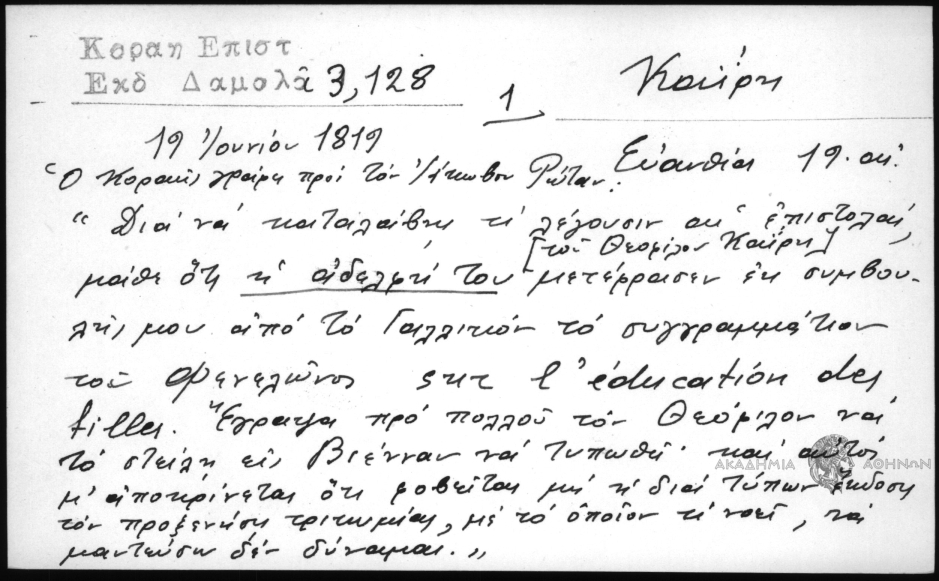 Κοραη Επιστ
Εκδ Δαμαλᾶ 3,128
1
Καΐρη
19 Ἰουνίου 1819
Εὐανθία 19. αἰ.
Ὁ Κοραῆς γράφει πρὸς τὸν Ἰάκωβον Ρώταν:
"Διὰ νὰ καταλάβῃς τί λέγουσιν αἱ ἐπιστολαί,
[τοῦ Θεοφίλου Καΐρη]
μάθε ὅτι ἡ ἀδελφή του μετέφρασεν ἐκ συμβου-
λῆς μου ἀπὸ τὸ Γαλλικὸν τὸ συγγραμμάτιον
τοῦ Φενελῶνος sur l'éducation des
filles. Ἔγραψα πρὸ πολλοῦ τὸν Θεόφιλον νὰ
τὸ στείλῃ εἰς Βιένναν νὰ τυπωθῇ· καὶ αὐτὸς
μ' ἀποκρίνεται ὅτι φοβεῖται μὴ ἡ διὰ τύπων ἔκδοσις
τὸν προξενήσῃ τρικυμίας, μὲ τὸ ὁποῖον τί νοεῖ, νὰ
μαντεύσω δὲν δύναμαι."
ΑΚΑΔΗΜΙΑ ΑΘΗΝΩΝ